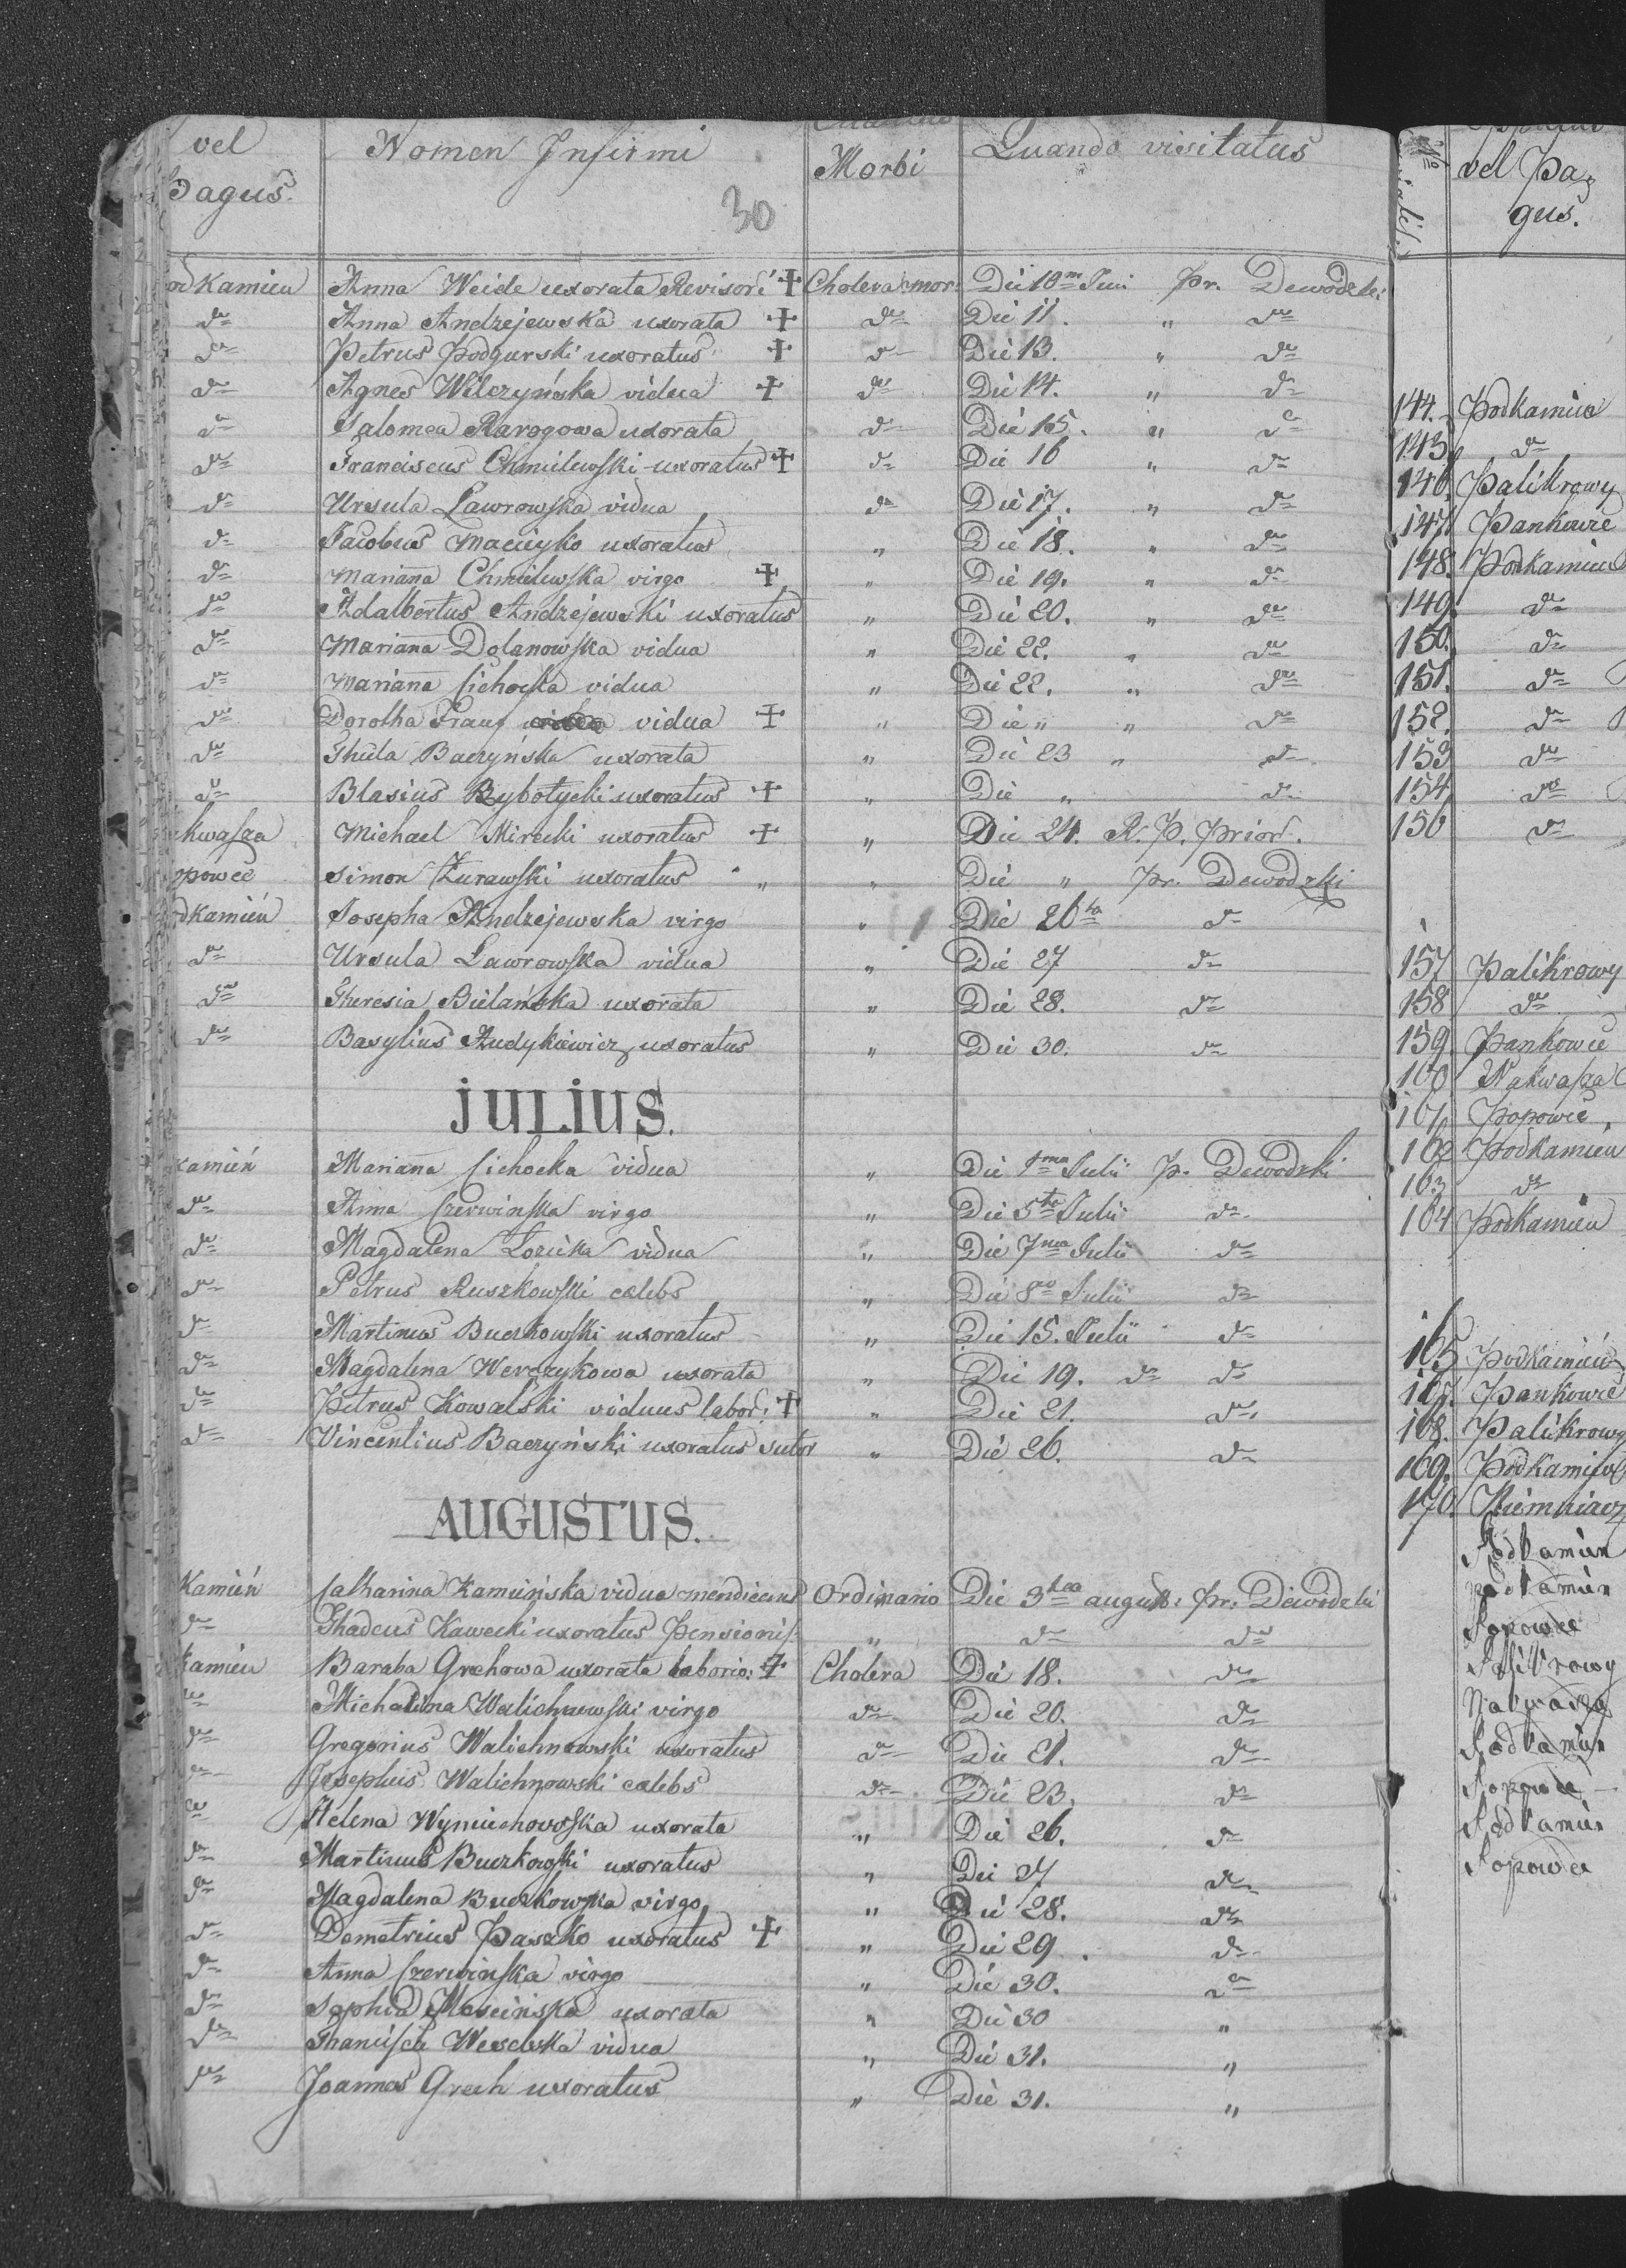 vel pagus. Nomen Infirmi Morbi Quando visitatus
30
odkamien Anna Weide uxorata Revisori + Cholera mor: Die 10ma Juni Pr. Dewodzki
dto Anna Andrzejewska uxorata + dto Die 11. " dto
dto Petrus Podgurski uxoratus + dto Die 13. " dto
dto Agnes Wilczyńska vidua + dto Die 14. " dto
dto Salomea Rarogowa uxorata dto Die 15. " dto
dto Franciscus Chmilewski uxoratus + dto Die 16 " dto
dto Ursula Lawrowska vidua dto Die 17. " dto
dto Jacobus Macieyko uxoratus " Die 18. " dto
dto Marianna Chmilewska virgo + " Die 19. " dto
dto Adalbertus Andrzejewski uxoratus " Die 20. " dto
dto Marianna Dolanowska vidua " Die 22. " dto
dto Mariana Cichocka vidua " Die 22. " dto
dto Dorotha vidua + " Die " " dto
dto Thecla Baczyńska uxorata " Die 23 " dto
dto Blasius Rybotycki uxoratus + " Die " dto
kwasza Michael Mirecki uxoratus + " Die 24. R. P. Prior.
opowce Simon Żurawski uxoratus " " Die " Pr. Dewodzki
odkamień Josepha Andrzejewska virgo " Die 26ta dto
dto Ursula Lawrowska vidua " Die 27 dto
dto Theresia Bielańska uxorata " Die 28. dto
dto Basylius Audykiewicz uxoratus " Die 30. dto
JULIUS.
kamień Marianna Cichocka vidua " Die 1ma Julii P. Dewodzki
dto Anna Czerwińska virgo " Die 5ta Julii dto
dto Magdalena Łozicka vidua " Die 7ma Julii dto
dto Petrus Ruszkowski cælebs " Die 8va Julii dto
dto Martinus Buczkowski uxoratus " Die 15. Julii dto
dto Magdalena Werczykowa uxorata " Die 19. dto dto
dto Petrus Kowalski viduus labor: + " Die 21. dto
dto Vincentius Baczyński uxoratus sutor " Die 26. dto
AUGUSTUS.
Kamień Catharina Kamińska vidua mendicans Ordinario Die 3tia august: Pr: Dewodzki
dto Thadeus Kawecki uxoratus Pensionis " dto dto
Kamien Baraba Grechowa uxorata laborio: + Cholera Die 18. dto
dto Michalina Walichnowski virgo dto Die 20. dto
dto Gregorius Walichnowski uxoratus dto Die 21. dto
dto Josephus Walichnowski cælebs dto Die 23. dto
dto Helena Wyniuchowska uxorata " Die 26. dto
dto Martinus Buczkowski uxoratus " Die 27 dto
dto Magdalena Buczkowska virgo " Die 28. dto
dto Demetrius Paszko uxoratus + " Die 29. dto
dto Anna Czerwińska virgo " Die 30. dto
dto Sophia uxorata " Die 30 "
dto Wesołska vidua " Die 31. "
dto Joannes Grech uxoratus " Die 31. "
vel Pa-
gus.
144. Podkamien
145 dto
146. Palikrowy
147. Pankowce
148. Podkamien
149. dto
150. dto
151. dto
152. dto
153 dto
154 dto
156 dto
157 Palikrowy
158 dto
159. Pankowce
160 Nakwasza
161 Popowce
162 Podkamien
163 dto
164 Podkamien
165 Podkamień
167. Pankowce
168. Palikrowy
169. Podkamień
170.
Podkamien
podkamien
Popowce
Palikrowy
Nakwasza
Podkamien
Popowce
Podkamien
Popowce